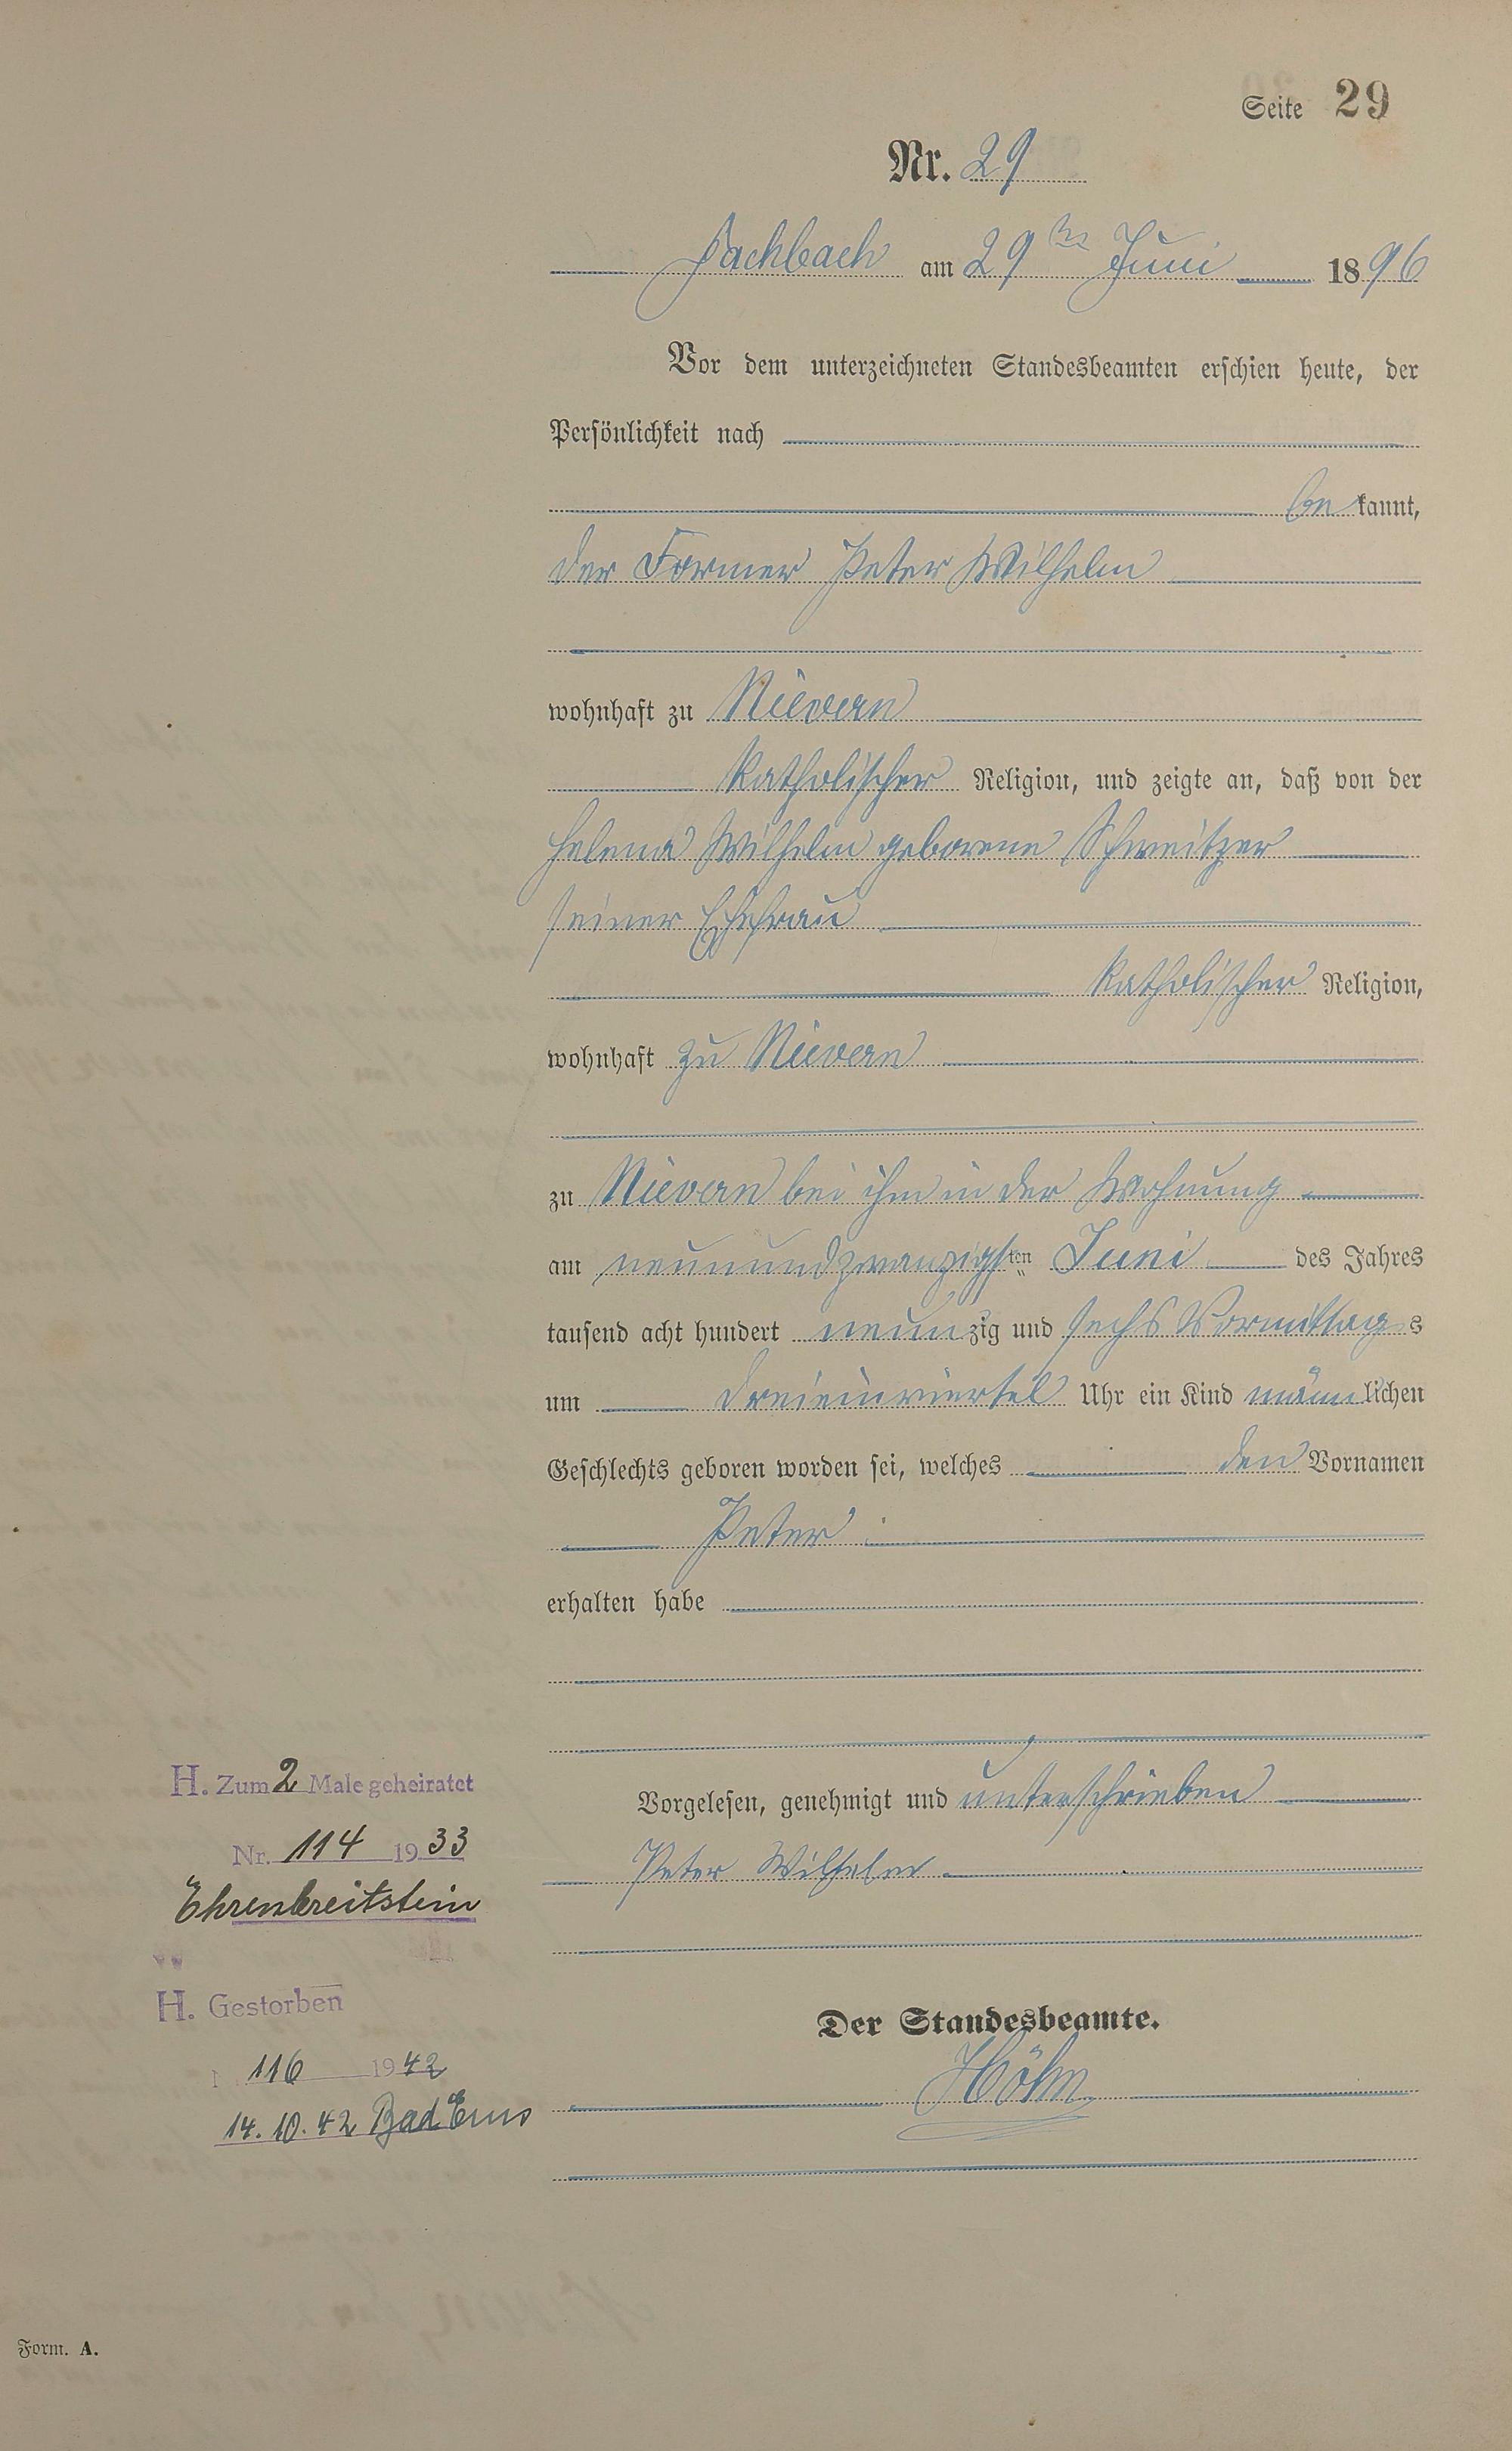 Seite 29
Nr. 29
Fachbach am 29ten Juni 1896
Vor dem unterzeichneten Standesbeamten erschien heute, der
Persönlichkeit nach
bekannt,
der Former Peter Wilhelm
wohnhaft zu Nievern
katholischer Religion, und zeigte an, daß von der
Helena Wilhelm geborene Schweitzer
seiner Ehefrau
katholischer Religion,
wohnhaft zu Nievern
zu Nievern bei ihm in der Wohnung
am neunundzwanzigsten Juni des Jahres
tausend acht hundert neunzig und sechs Vormittags
um dreieinviertel Uhr ein Kind männlichen
Geschlechts geboren worden sei, welches den Vornamen
Peter
erhalten habe
Vorgelesen, genehmigt und unterschrieben
Peter Wilhelm
Der Standesbeamte.
Höhn
H. Zum 2 Male geheiratet
Nr. 114 1933
Ehrenbreitstein
H. Gestorben
116 1942
14.10.42 Bad Ems
Form. A.